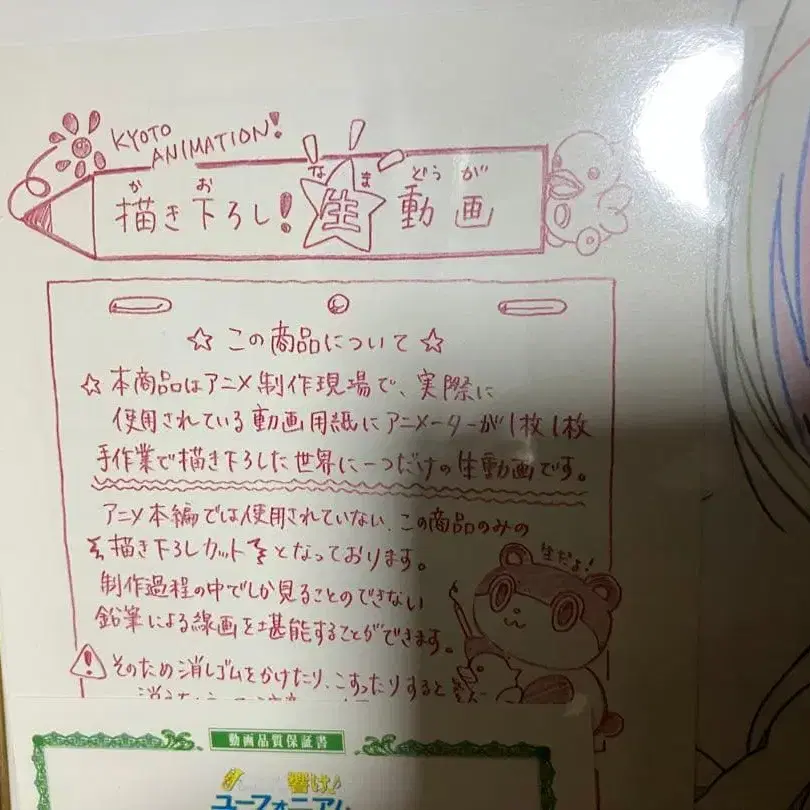 KYOTO
ANIMATION!
か お な ま どう が
描き下ろし! 生 動画
☆ この商品について ☆
☆ 本商品はアニメ制作現場で、実際に
使用されている動画用紙にアニメーターが1枚1枚
手作業で描き下ろした世界に一つだけの生動画です。
アニメ本編では使用されていない、この商品のみの
描き下ろしカットとなっております。
生だよ!
制作過程の中でしか見ることのできない
鉛筆による線画を堪能することができます。
そのため消しゴムをかけたり、こすったりすると
動画品質保証書
響け♪
ユーフォニアム